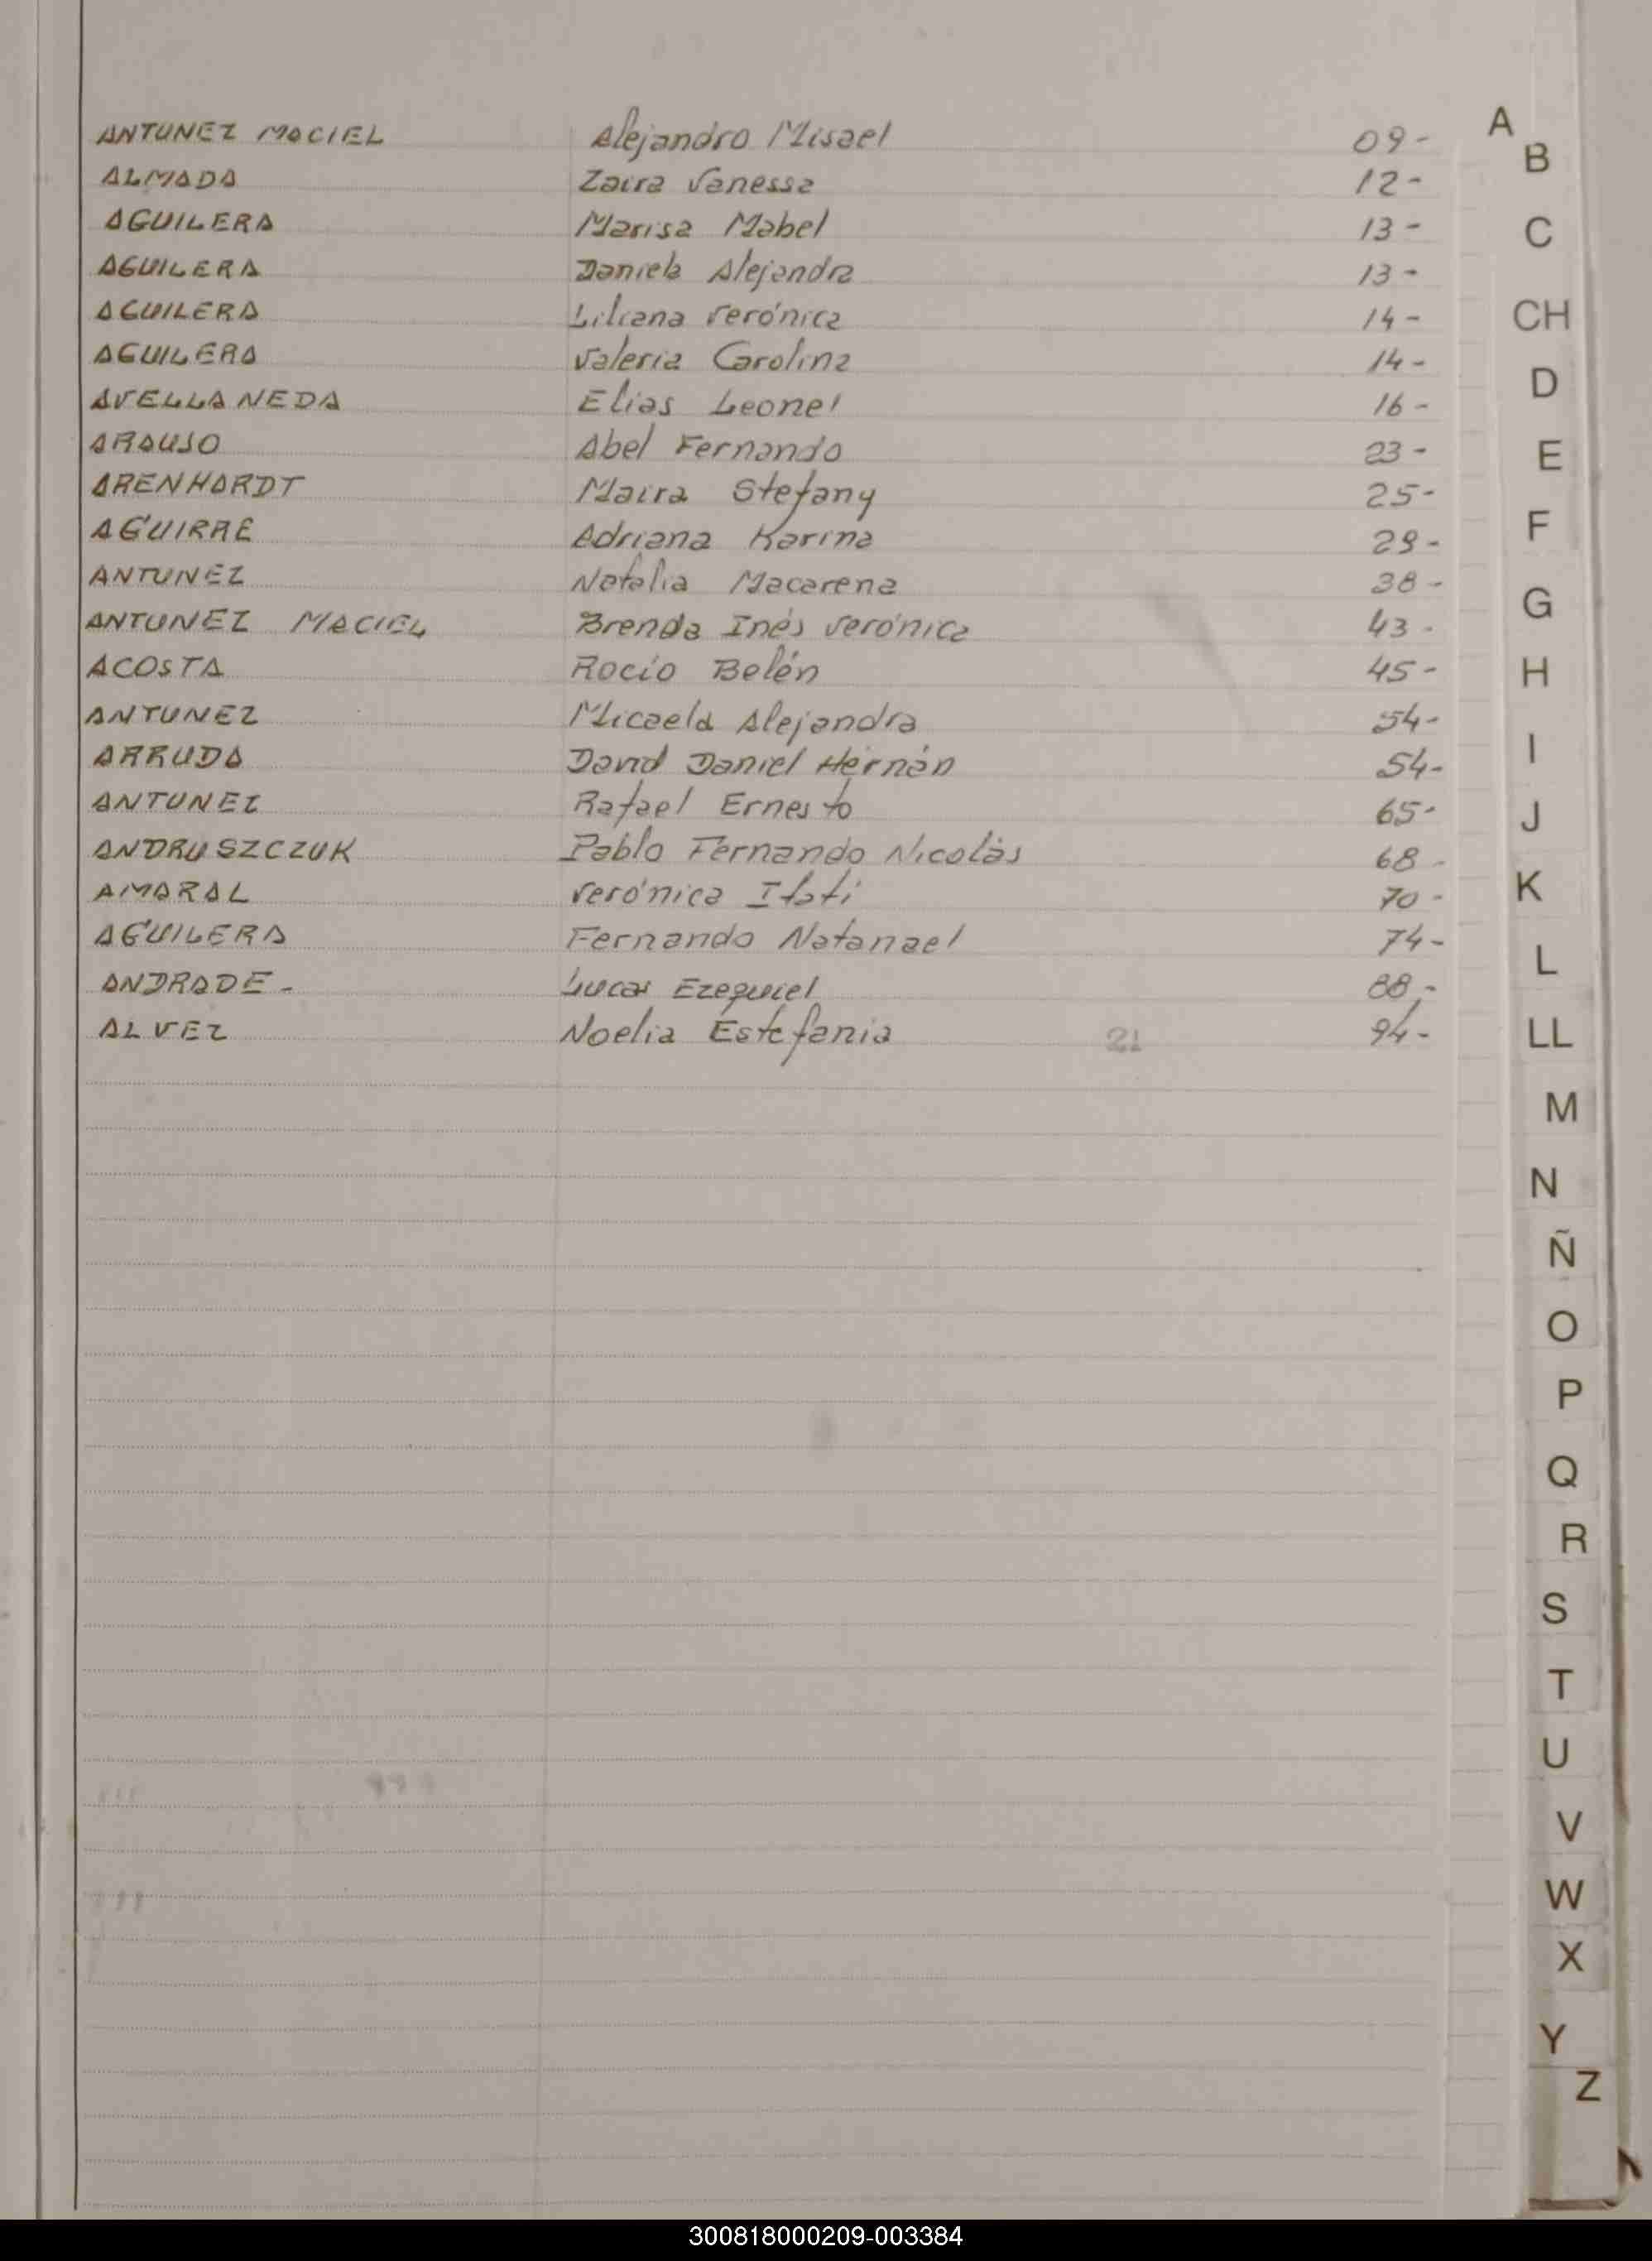 ANTUNEZ MACIEL Alejandro Misael 09-
ALMADA Zaira Vanessa 12-
AGUILERA Marisa Mabel 13-
AGUILERA Daniela Alejandra 13-
AGUILERA Liliana Verónica 14-
AGUILERA Valeria Carolina 14-
AVELLANEDA Elias Leonel 16-
ARAUJO Abel Fernando 23-
ARENHARDT Maira Stefany 25-
AGUIRRE Adriana Karina 29-
ANTUNEZ Natalia Macarena 38-
ANTUNEZ MACIEL Brenda Inés Verónica 43-
ACOSTA Rocío Belén 45-
ANTUNEZ Micaela Alejandra 54-
ARRUDA David Daniel Hernán 54-
ANTUNEZ Rafael Ernesto 65-
ANDRUSZCZUK Pablo Fernando Nicolás 68-
AMARAL Verónica Itatí 70-
AGUILERA Fernando Natanael 74-
ANDRADE- Lucas Ezequiel 88,-
ALVEZ Noelia Estefania 21 94-
A
B
C
CH
D
E
F
G
H
I
J
K
L
LL
M
N
Ñ
O
P
Q
R
S
T
U
V
W
X
Y
Z
300818000209-003384